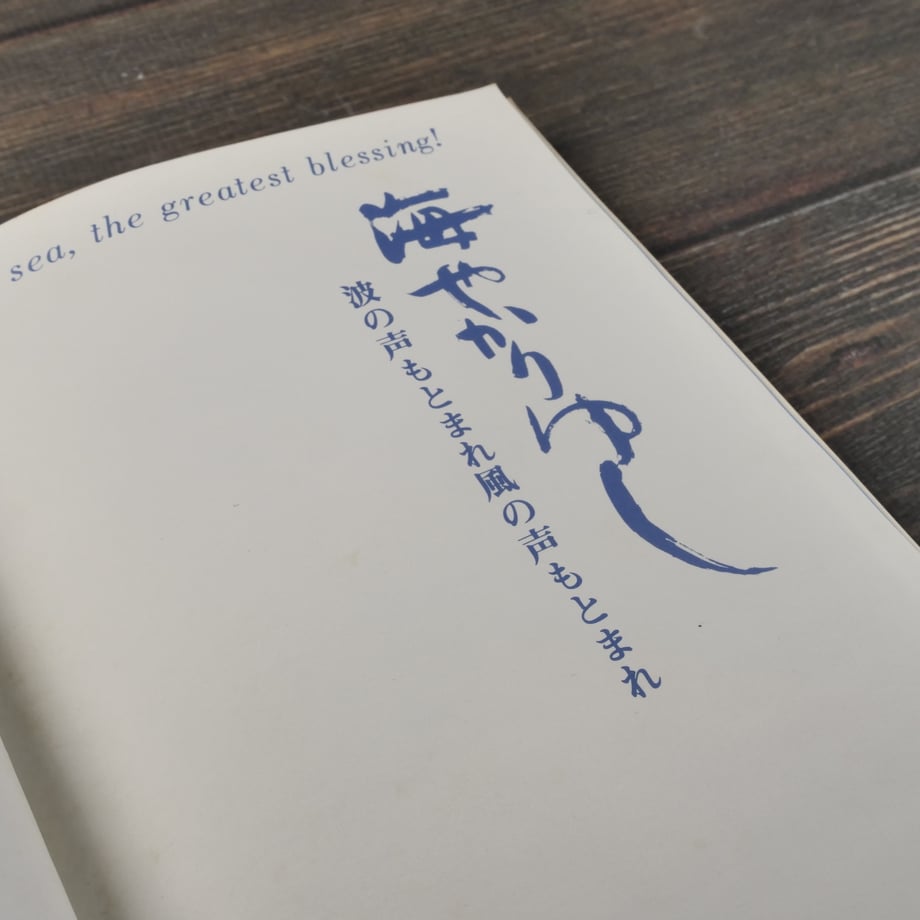 sea, the greatest blessing!
海やかりゆし
波の声もとまれ風の声もとまれ